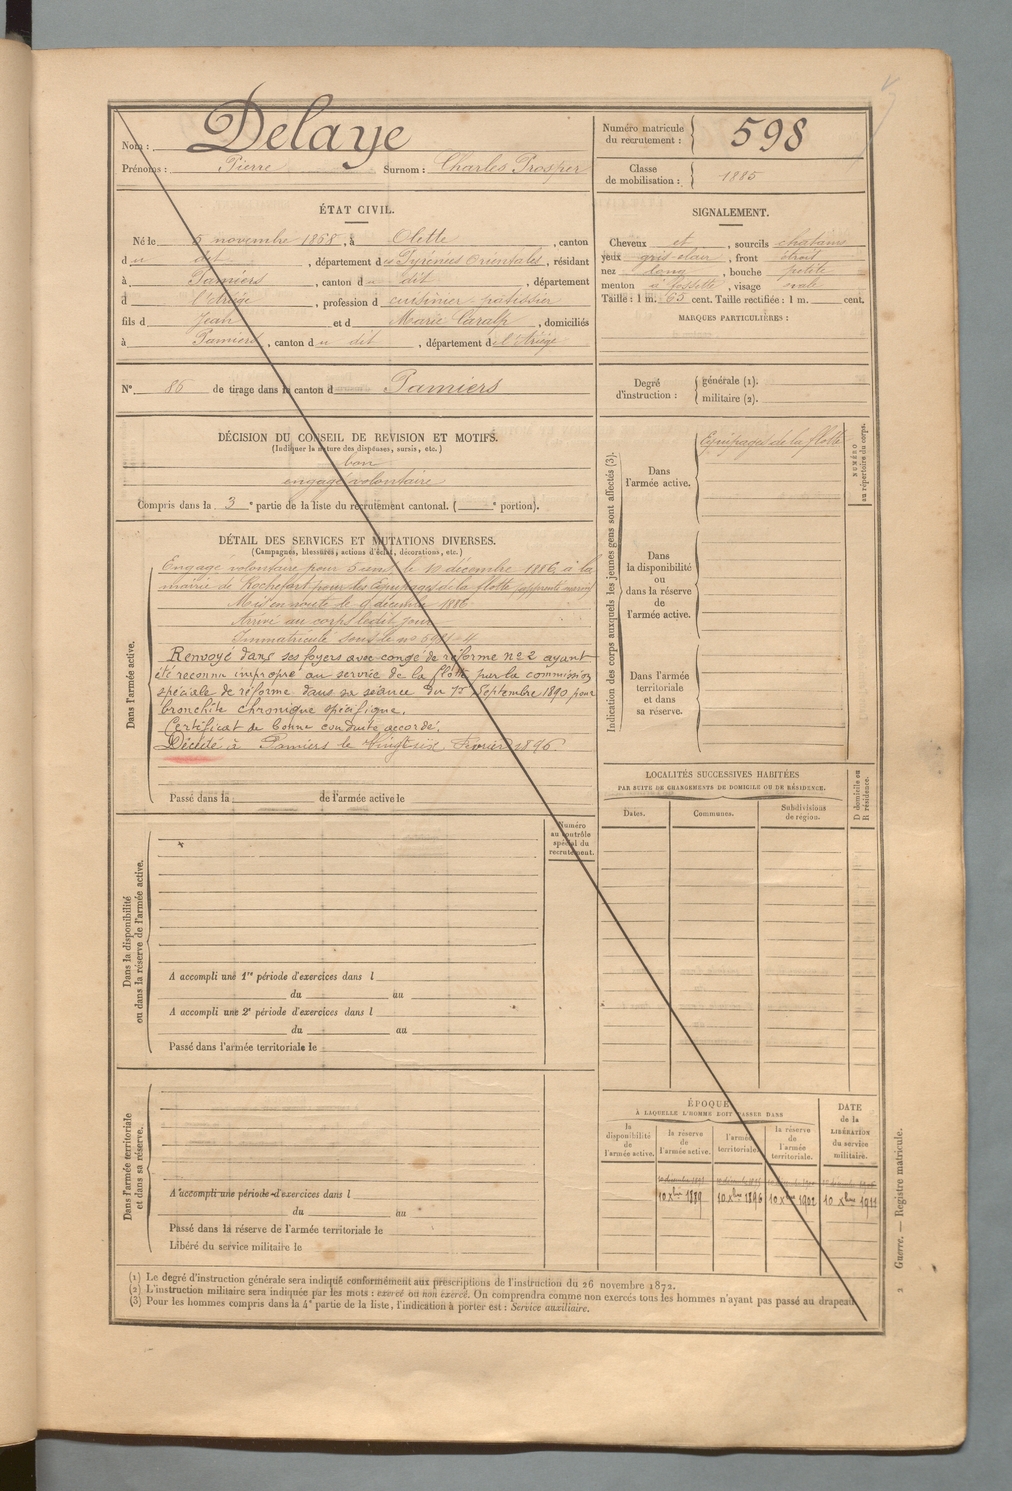 Nom : Delaye
Prénoms : Pierre Surnom : Charles Prosper
Numéro matricule du recrutement : 598
Classe de mobilisation : 1885
ÉTAT CIVIL.
Né le 5 novembre 1868, à Olette, canton
du dit, département des Pyrénées Orientales, résidant
à Pamiers, canton du dit, département
d l'Ariège, profession d cuisinier-pâtissier
fils d Jean et d Marie Caralp, domiciliés
à Pamiers, canton du dit, département de l'Ariège
SIGNALEMENT.
Cheveux et, sourcils chatains
yeux gris clair, front étroit
nez long, bouche petite
menton à fossette, visage ovale
Taille : 1 m. 65 cent. Taille rectifiée : 1 m. cent.
MARQUES PARTICULIÈRES :
No 86 de tirage dans le canton d Pamiers
Degré d'instruction : générale (1).
militaire (2).
DÉCISION DU CONSEIL DE REVISION ET MOTIFS.
(Indiquer la nature des dispenses, sursis, etc.)
bon
engagé volontaire
Compris dans la 3e partie de la liste du recrutement cantonal. ( e portion).
DÉTAIL DES SERVICES ET MUTATIONS DIVERSES.
(Campagnes, blessures, actions d'éclat, décorations, etc.)
Dans l'armée active.
Engagé volontaire pour 5 ans, le 10 décembre 1886, à la
mairie de Rochefort pour les Equipages de la flotte (apprenti marin)
Mis en route le 9 décembre 1886
Arrivé au corps ledit jour
Immatriculé sous le no
Renvoyé dans ses foyers avec congé de réforme no 2 ayant
été reconnu impropre au service de la flotte par la commission
spéciale de réforme dans sa séance du 15 Septembre 1890 pour
bronchite chronique spécifique.
Certificat de bonne conduite accordé.
Décédé à Pamiers le Vingt six Fevrier 1896
Passé dans la de l'armée active le
Indication des corps auxquels les jeunes gens sont affectés (3).
Dans l'armée active.
Equipages de la flotte
NUMÉRO au répertoire du corps.
Dans la disponibilité ou dans la réserve de l'armée active.
Dans l'armée territoriale et dans sa réserve.
LOCALITÉS SUCCESSIVES HABITÉES
PAR SUITE DE CHANGEMENTS DE DOMICILE OU DE RÉSIDENCE.
Dates. Communes. Subdivisions de région.
D domicile ou R résidence.
Numéro au contrôle spécial du recrutement.
Dans la disponibilité ou dans la réserve de l'armée active.
A accompli une 1re période d'exercices dans l
du au
A accompli une 2e période d'exercices dans l
du au
Passé dans l'armée territoriale le
Dans l'armée territoriale et dans sa réserve.
A accompli une période d'exercices dans l
du au
Passé dans la réserve de l'armée territoriale le
Libéré du service militaire le
ÉPOQUE
À LAQUELLE L'HOMME DOIT PASSER DANS
la disponibilité de l'armée active.
la réserve de l'armée active.
l'armée territoriale.
la réserve de l'armée territoriale.
DATE de la LIBÉRATION du service militaire.
10 Xbre 1889 10 Xbre 1896 10 Xbre 1902 10 Xbre 1911
(1) Le degré d'instruction générale sera indiqué conformément aux prescriptions de l'instruction du 26 novembre 1872.
(2) L'instruction militaire sera indiquée par les mots : exercé ou non exercé. On comprendra comme non exercés tous les hommes n'ayant pas passé au drapeau.
(3) Pour les hommes compris dans la 4e partie de la liste, l'indication à porter est : Service auxiliaire.
2 Guerre. — Registre matricule.